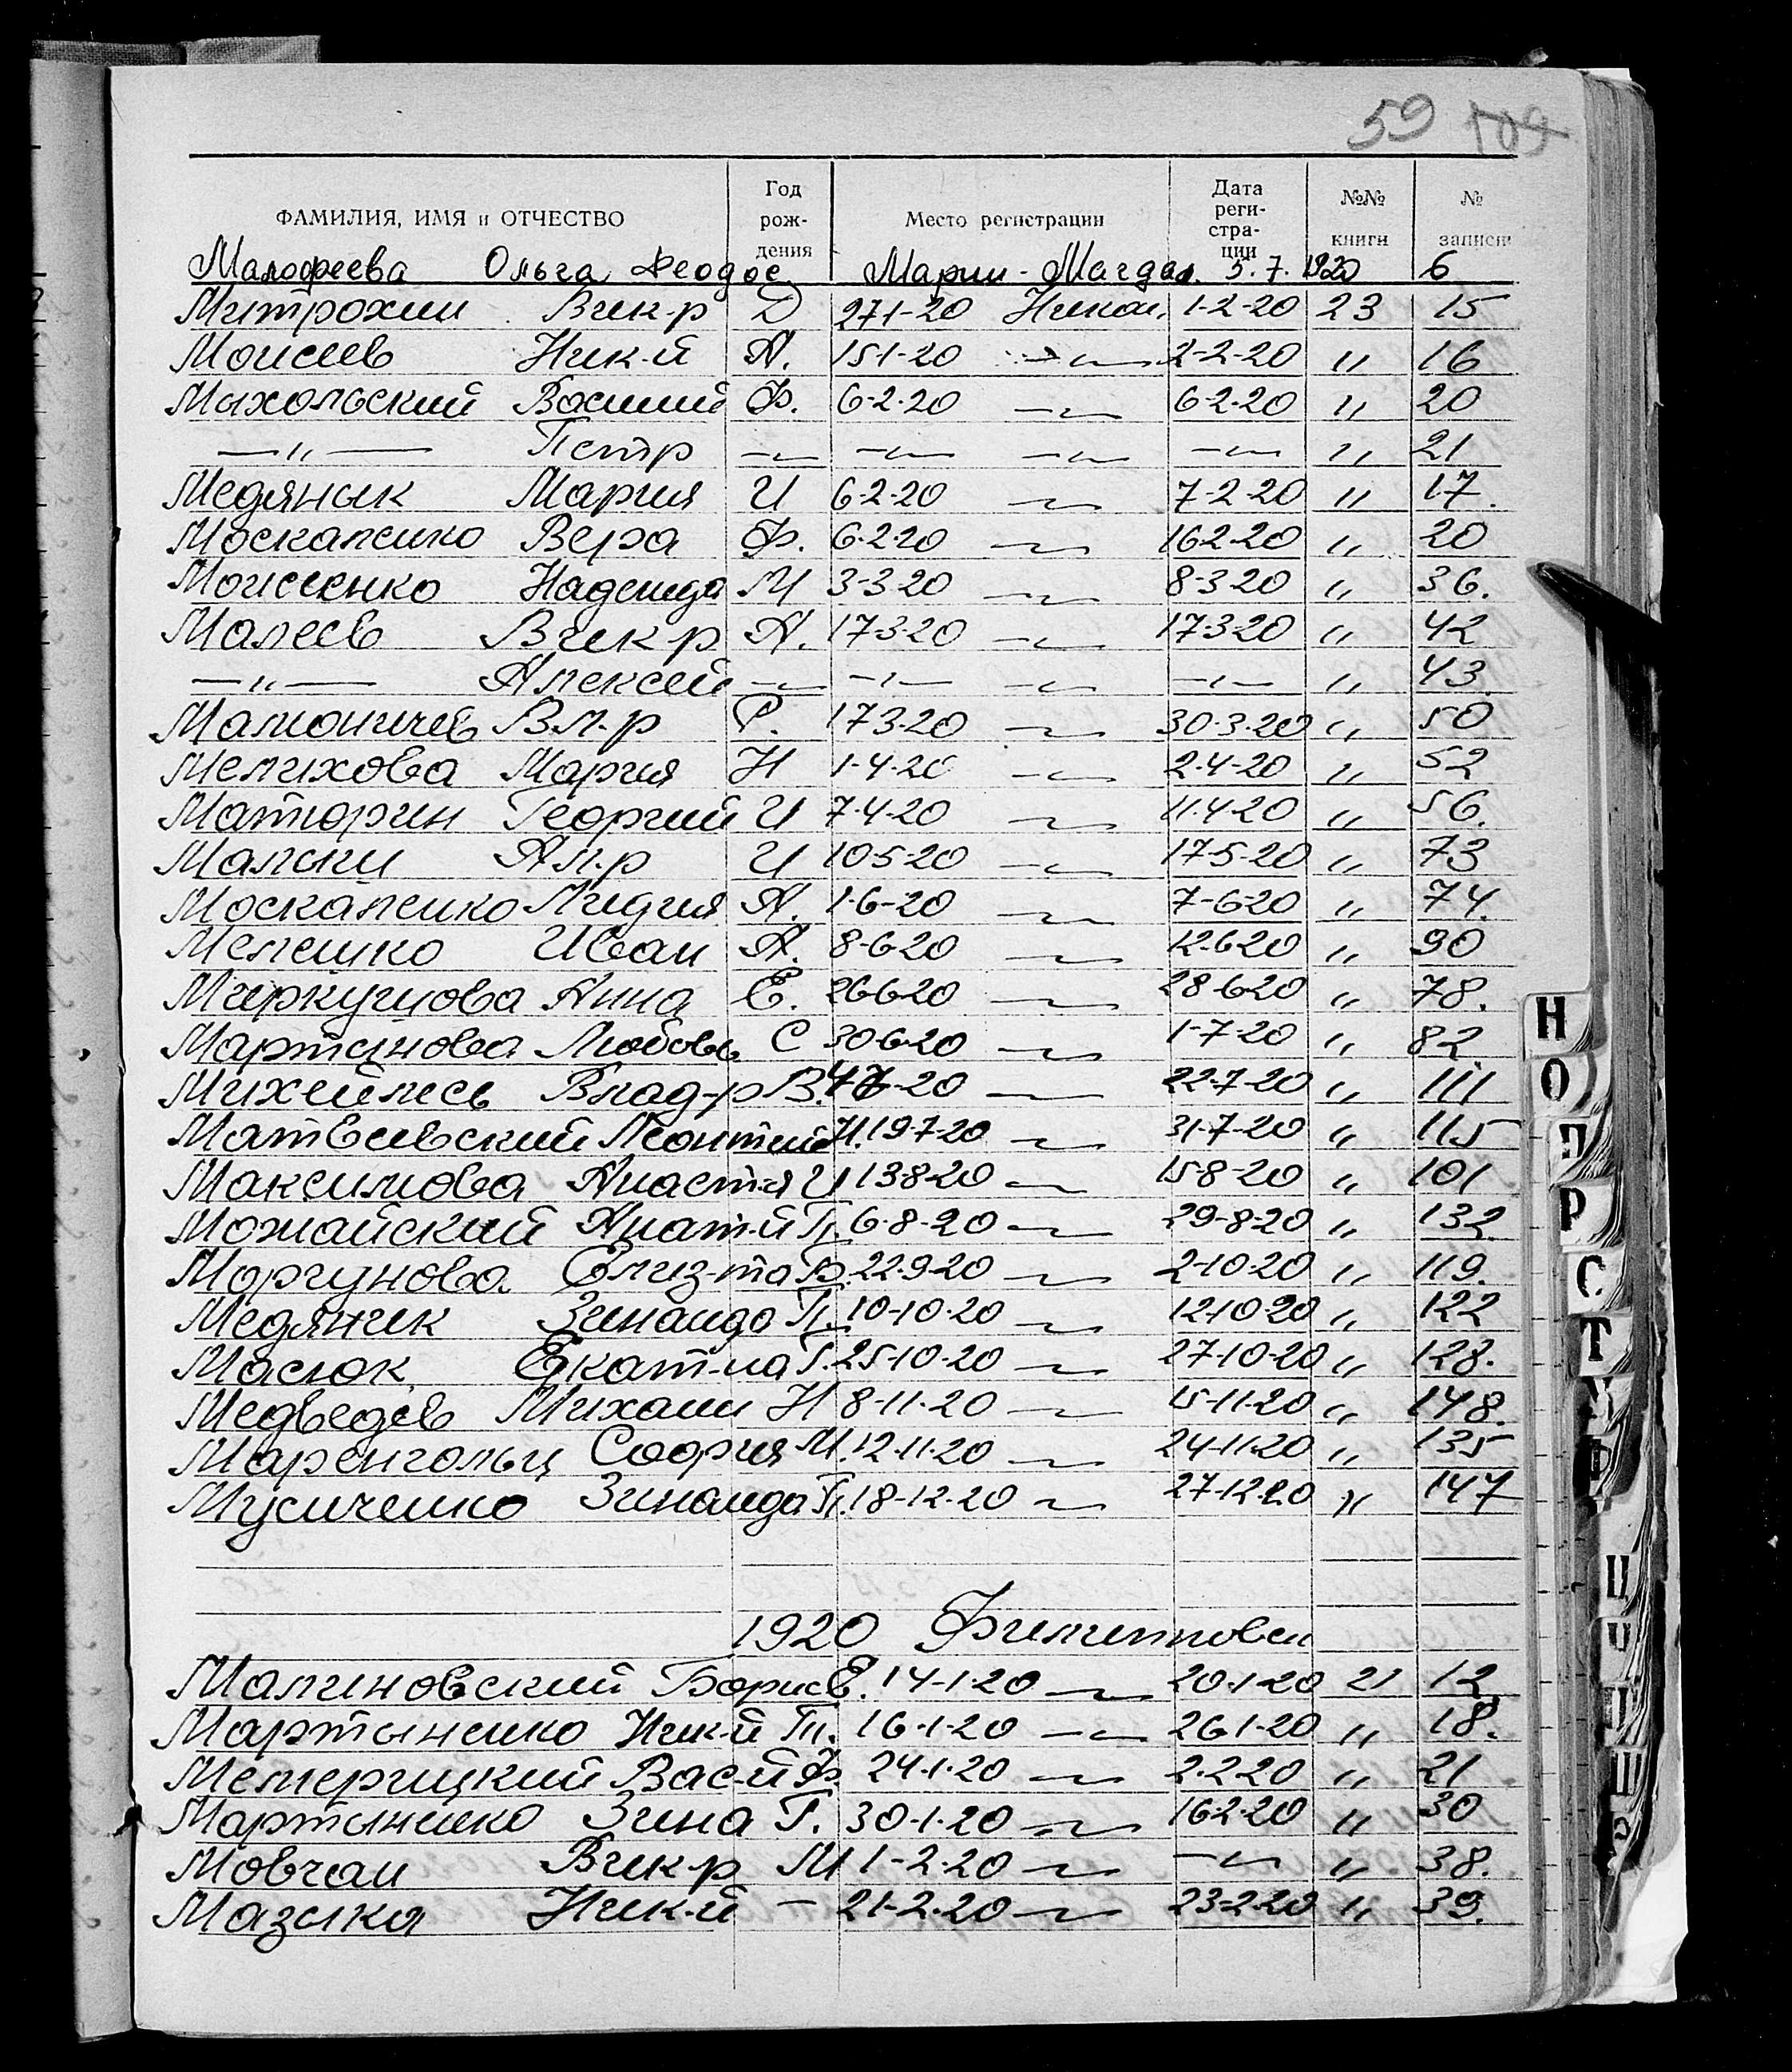 59 109
ФАМИЛИЯ, ИМЯ и ОТЧЕСТВО Год рож- дения Место регистрации Дата реги- стра- ции №№ книги № записи
Малофеева Ольга Феодос Марии-Магдал. 5.7.1920 6
Митрохин Вик-р Д 27 1-20 Никол. 1-2-20 23 15
Моисеев Ник-й А. 15 1-20 —〃— 2-2-20 〃 16
Михольский Василий Ф. 6-2-20 —〃— 6-2-20 〃 20
—〃— Петр —〃— —〃— —〃— —〃— 〃 21
Медяник Мария И 6-2-20 —〃— 7-2-20 〃 17.
Москаленко Вера Ф. 6-2-20 —〃— 16-2-20 〃 20
Моисеенко Надежда М 3-3-20 —〃— 8-3-20 〃 36.
Малеев Вик-р А. 17-3-20 —〃— 17-3-20 〃 42
—〃— Алексей —〃— —〃— —〃— —〃— 〃 43
Вл-р Р. 17 3-20 —〃— 30-3-20 〃 50
Мелихова Мария Н 1-4-20 —〃— 2-4-20 〃 52
Маторин Георгий И 7-4-20 —〃— 11-4-20 〃 56.
Ал-р И 10-5-20 —〃— 17-5-20 〃 73
Москаленко Лидия А. 1-6-20 —〃— 7-6-20 〃 74.
Мелешко Иван А. 8-6-20 —〃— 12-6-20 〃 90
Миркушова Анна Е. 26-6-20 —〃— 28-6-20 〃 78.
Мартынова Любовь С 30-6-20 —〃— 1-7-20 〃 82
Влад-р В. -20 —〃— 22-7-20 〃 111
Матвеевский Леонтий Н. 19-7-20 —〃— 31-7-20 〃 115
Максимова Анаст-я И 13-8-20 —〃— 15-8-20 〃 101
Можайский Анат-й П. 6-8-20 —〃— 29-8-20 〃 132
Моргунова Елиз-та Ф. 22-9-20 —〃— 2-10-20 〃 119.
Медяник Зинаида П. 10-10-20 —〃— 12-10-20 〃 122
Масюк Екат-на Г. 25-10-20 —〃— 27-10-20 〃 128.
Медведев Михаил Н 8-11-20 —〃— 15-11-20 〃 148.
Маренгольц София М. 12-11-20 —〃— 24-11-20 〃 135
Мусиченко Зинаида П. 18-12-20 —〃— 27-12-20 〃 147
1920 Филипповск
Малиновский Борис Е. 14-1-20 —〃— 20-1-20 21 12
Мартыненко Ник-й Т. 16-1-20 —〃— 26 1-20 〃 18.
Вас-й Ф. 24-1-20 —〃— 2-2-20 〃 21
Мартыненко Зина Г. 30-1-20 —〃— 16-2-20 〃 30
Мовчан Вик-р М 1-2-20 —〃— —〃— 〃 38.
Ник-й — 21-2-20 —〃— 23-2-20 〃 39.
Н
О
П
Р
С
Т
У
Ф
Ц
Ч
Ш